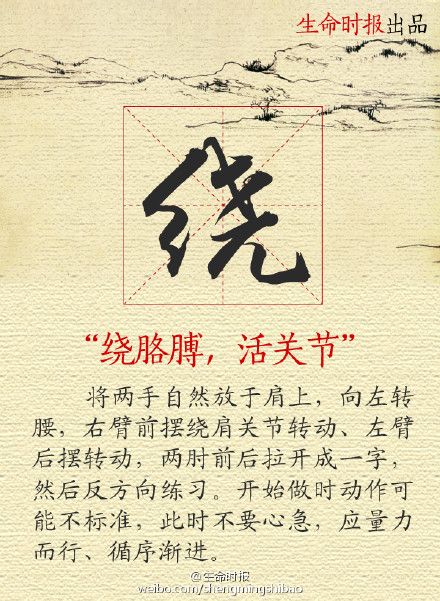 生命时报出品
绕
“绕胳膊，活关节”
将两手自然放于肩上，向左转
腰，右臂前摆绕肩关节转动、左臂
后摆转动，两肘前后拉开成一字，
然后反方向练习。开始做时动作可
能不标准，此时不要心急，应量力
而行、循序渐进。
@生命时报
weibo.com/shengmingshibao